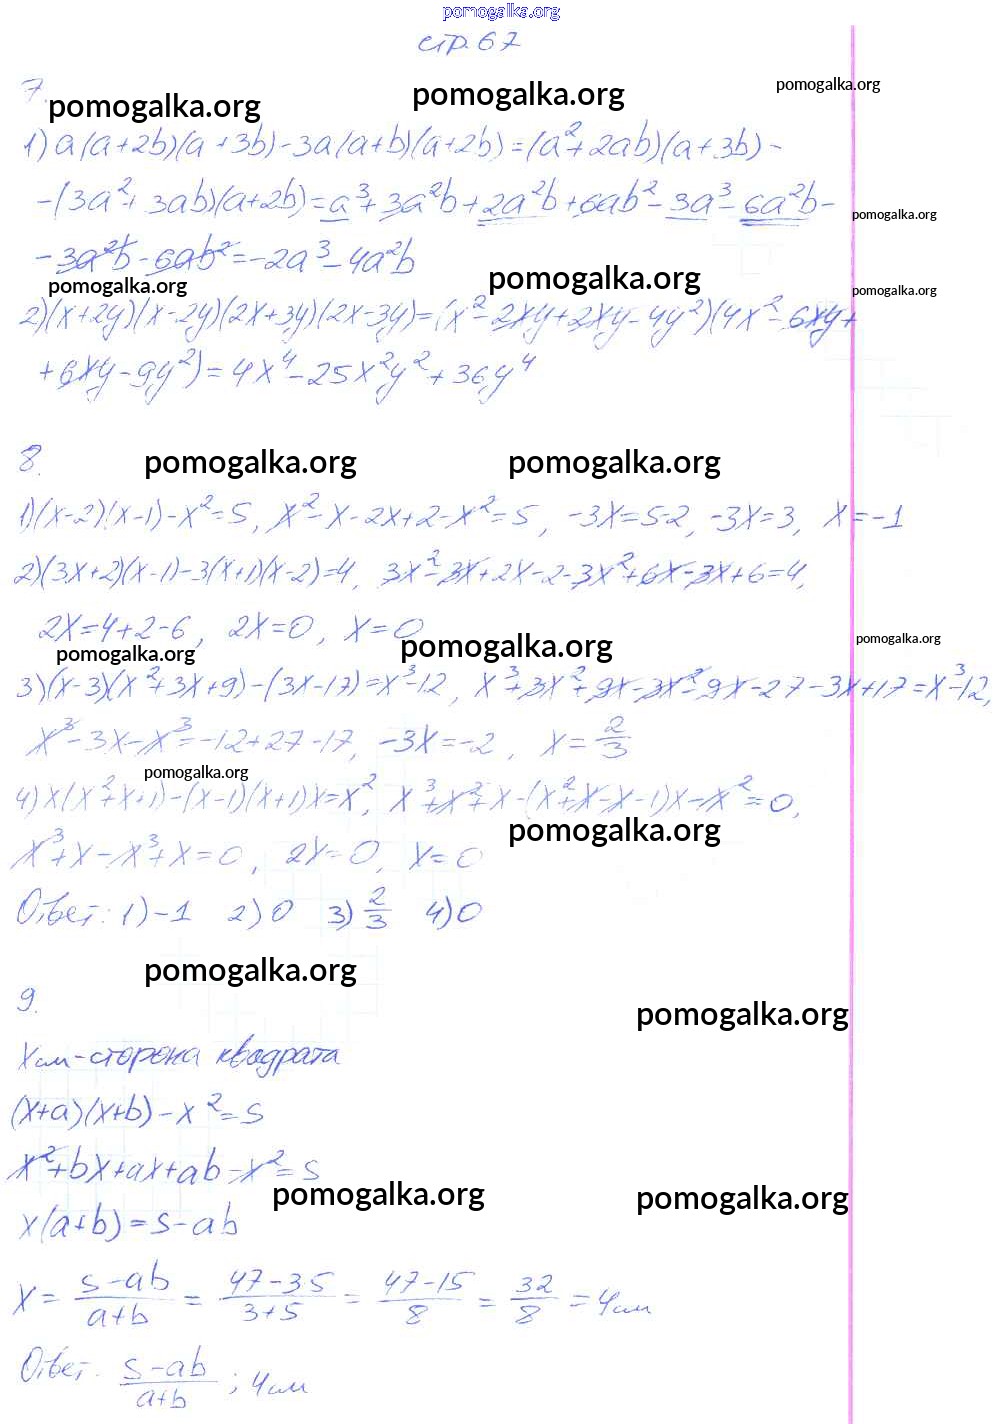 pomogalka.org
стр. 67
7.
pomogalka.org pomogalka.org pomogalka.org
1) a(a+2b)(a+3b)-3a(a+b)(a+2b)=(a²+2ab)(a+3b)-
-(3a²+3ab)(a+2b)=a³+3a²b+2a²b+6ab²-3a³-6a²b-
pomogalka.org
-3a²b-6ab²=-2a³-4a²b
pomogalka.org pomogalka.org pomogalka.org
2)(x+2y)(x-2y)(2x+3y)(2x-3y)=(x²-2xy+2xy-4y²)(4x²-6xy+
+6xy-9y²)=4x⁴-25x²y²+36y⁴
8.
pomogalka.org pomogalka.org
1)(x-2)(x-1)-x²=5, x²-x-2x+2-x²=5, -3x=5-2, -3x=3, x=-1
2)(3x+2)(x-1)-3(x+1)(x-2)=4, 3x²-3x+2x-2-3x²+6x-3x+6=4,
2x=4+2-6, 2x=0, x=0
pomogalka.org pomogalka.org pomogalka.org
3)(x-3)(x²+3x+9)-(3x-17)=x³-12, x³+3x²+9x-3x²-9x-27-3x+17=x³-12,
x³-3x-x³=-12+27-17, -3x=-2, x=2/3
pomogalka.org
4)x(x²+x+1)-(x-1)(x+1)x=x², x³+x²+x-(x²+x-x-1)x-x²=0,
pomogalka.org
x³+x-x³+x=0, 2x=0, x=0
Ответ: 1)-1 2)0 3)2/3 4)0
pomogalka.org
9.
pomogalka.org
x см-сторона квадрата
(x+a)(x+b)-x²=S
x²+bx+ax+ab-x²=S
pomogalka.org pomogalka.org
x(a+b)=S-ab
x=(S-ab)/(a+b)=(47-3·5)/(3+5)=(47-15)/8=32/8=4см
Ответ. (S-ab)/(a+b); 4см